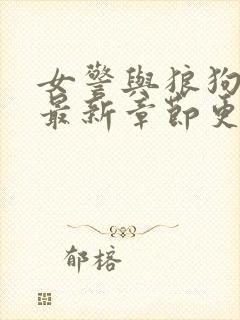 女警與狼狗
最新章節更
郁榕